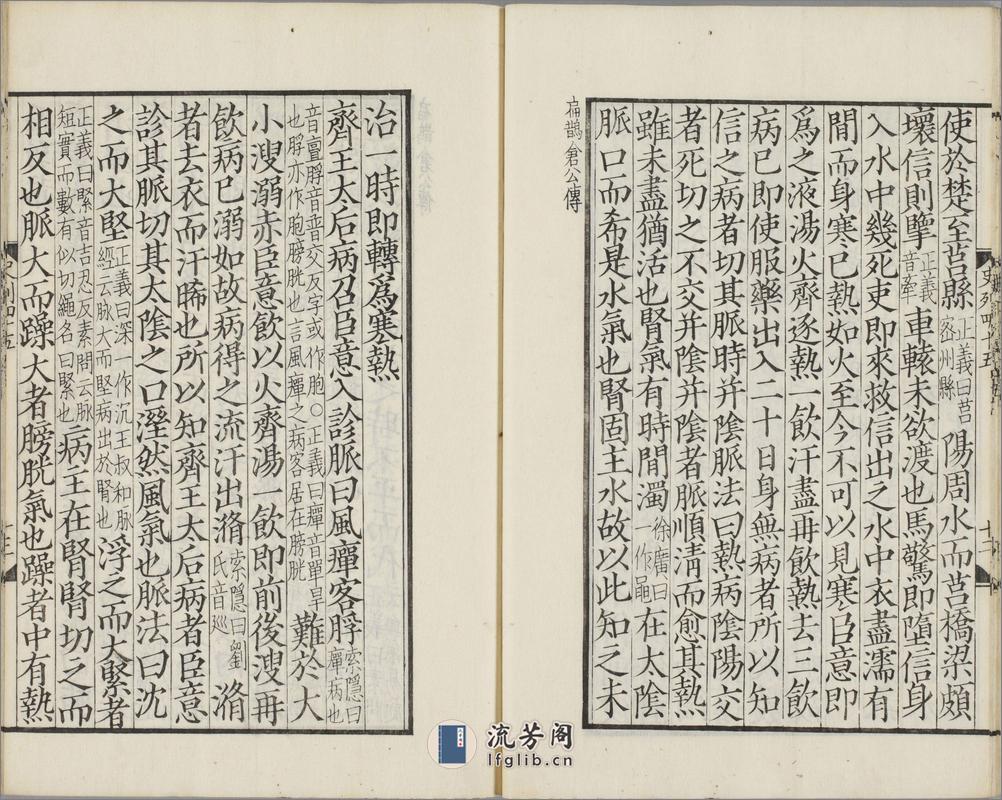 史列四十五
十二
使於楚至莒縣正義曰莒密州縣陽周水而莒橋梁頗
壞信則擥正義音牽車轅未欲渡也馬驚即墮信身
入水中幾死吏即來救信出之水中衣盡濡有
閒而身寒已熱如火至今不可以見寒臣意即
爲之液湯火齊逐熱一飲汗盡再飲熱去三飲
病已即使服藥出入二十日身無病者所以知
信之病者切其脈時并陰脈法曰熱病陰陽交
者死切之不交并陰并陰者脈順淸而愈其熱
雖未盡猶活也腎氣有時閒濁徐廣曰一作黽在太陰
脈口而希是水氣也腎固主水故以此知之未
扁鵲倉公傳
治一時即轉爲寒熱
齊王太后病召臣意入診脈曰風癉客脬索隱曰癉病也
音亶脬音普交反字或作胞○正義曰癉音單旱也脬亦作胞膀胱也言風癉之病客居在膀胱難於大
小溲溺赤臣意飲以火齊湯一飲即前後溲再
飲病已溺如故病得之流汗出㵌索隱曰劉氏音巡㵌
者去衣而汗晞也所以知齊王太后病者臣意
診其脈切其太陰之口溼然風氣也脈法曰沈
之而大堅正義曰深一作沉王叔和脈經云脉大而堅病出於腎也浮之而大緊者
正義曰緊音吉忍反素問云脉短實而數有似切繩名曰緊也病主在腎腎切之而
相反也脈大而躁大者膀胱氣也躁者中有熱
流芳阁
lfglib.cn